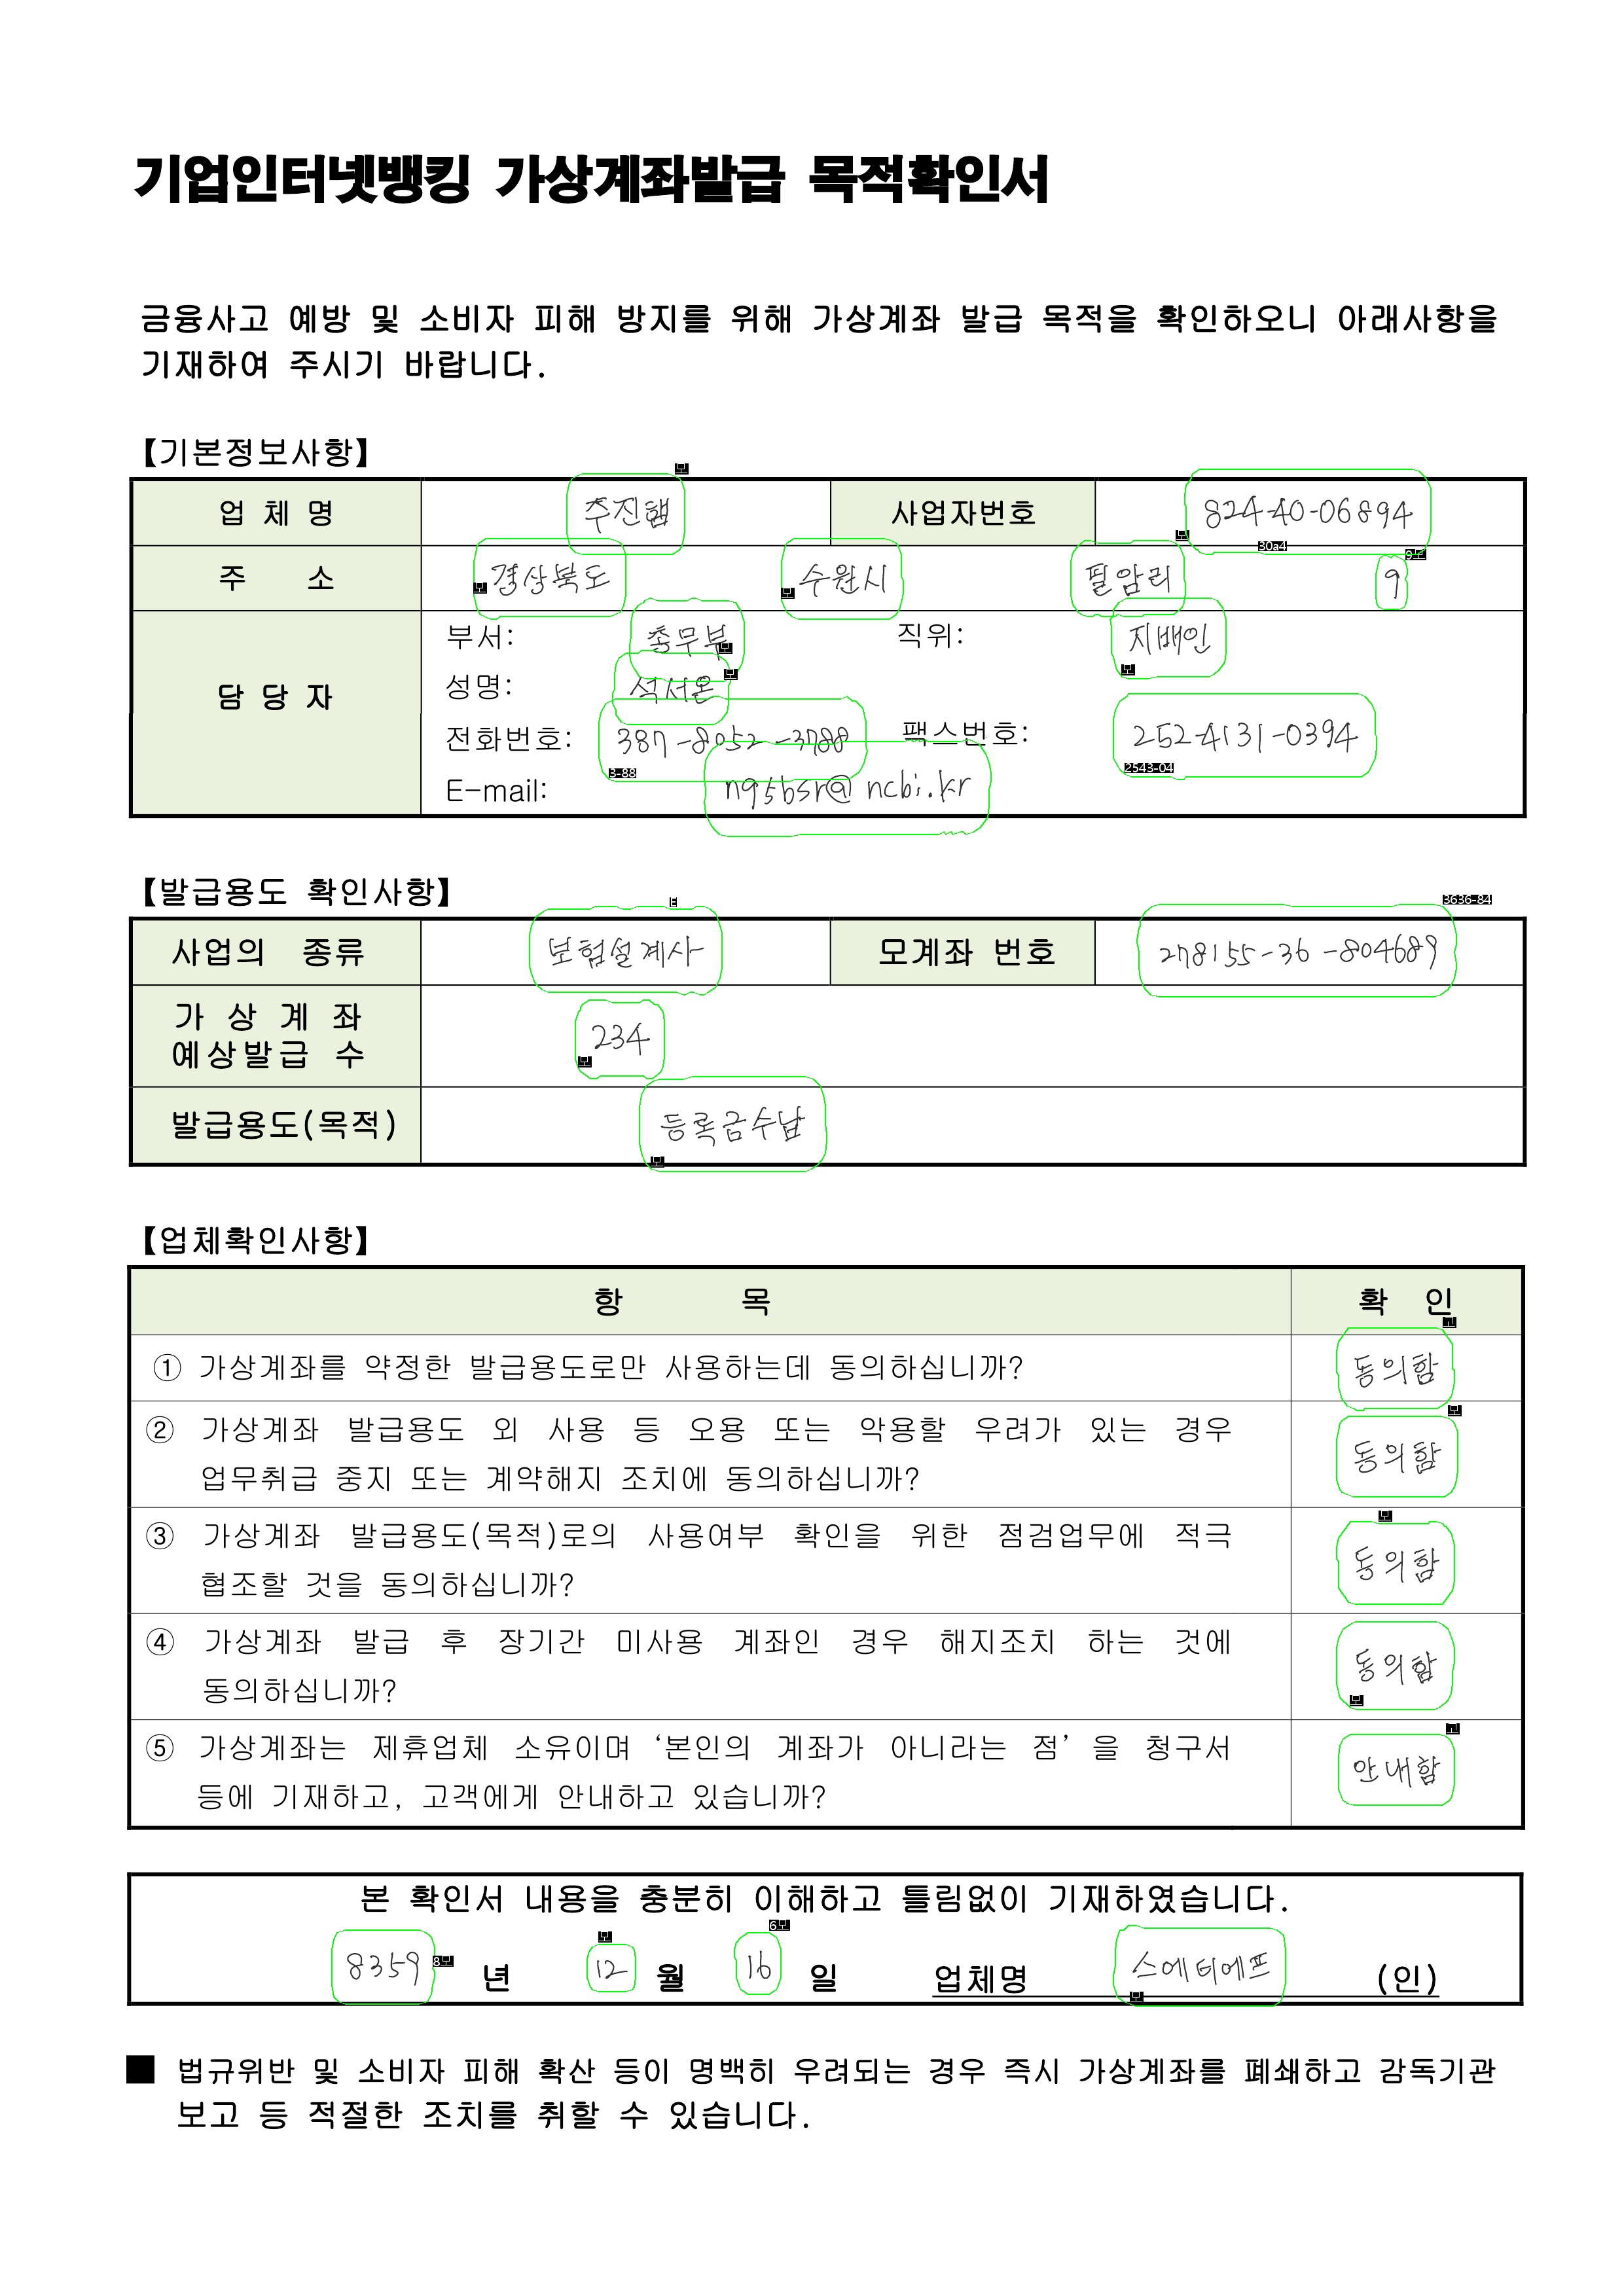 기업인터넷뱅킹 가상계좌발급 목적확인서
금융사고 예방 및 소비자 피해 방지를 위해 가상계좌 발급 목적을 확인하오니 아래사항을
기재하여 주시기 바랍니다.
【기본정보사항】
업 체 명 추진햄 사업자번호 824-40-06894
30a4
주 소 경상북도 수원시 필암리 9
담 당 자
부서: 총무부 직위: 지배인
성명: 석서온
전화번호: 387-8052-3788 팩스번호: 252-4131-0394
3-88 2543-04
E-mail: n95bsr@ncbi.kr
【발급용도 확인사항】
3636-84
사업의 종류 보험설계사 모계좌 번호 278155-36-804689
가 상 계 좌
예상발급 수 234
발급용도(목적) 등록금수납
【업체확인사항】
항 목 확 인
① 가상계좌를 약정한 발급용도로만 사용하는데 동의하십니까? 동의함
② 가상계좌 발급용도 외 사용 등 오용 또는 악용할 우려가 있는 경우
업무취급 중지 또는 계약해지 조치에 동의하십니까? 동의함
③ 가상계좌 발급용도(목적)로의 사용여부 확인을 위한 점검업무에 적극
협조할 것을 동의하십니까? 동의함
④ 가상계좌 발급 후 장기간 미사용 계좌인 경우 해지조치 하는 것에
동의하십니까? 동의함
⑤ 가상계좌는 제휴업체 소유이며 ‘본인의 계좌가 아니라는 점’을 청구서
등에 기재하고, 고객에게 안내하고 있습니까? 안내함
본 확인서 내용을 충분히 이해하고 틀림없이 기재하였습니다.
8359 년 12 월 16 일 업체명 스에티에프 (인)
■ 법규위반 및 소비자 피해 확산 등이 명백히 우려되는 경우 즉시 가상계좌를 폐쇄하고 감독기관
보고 등 적절한 조치를 취할 수 있습니다.